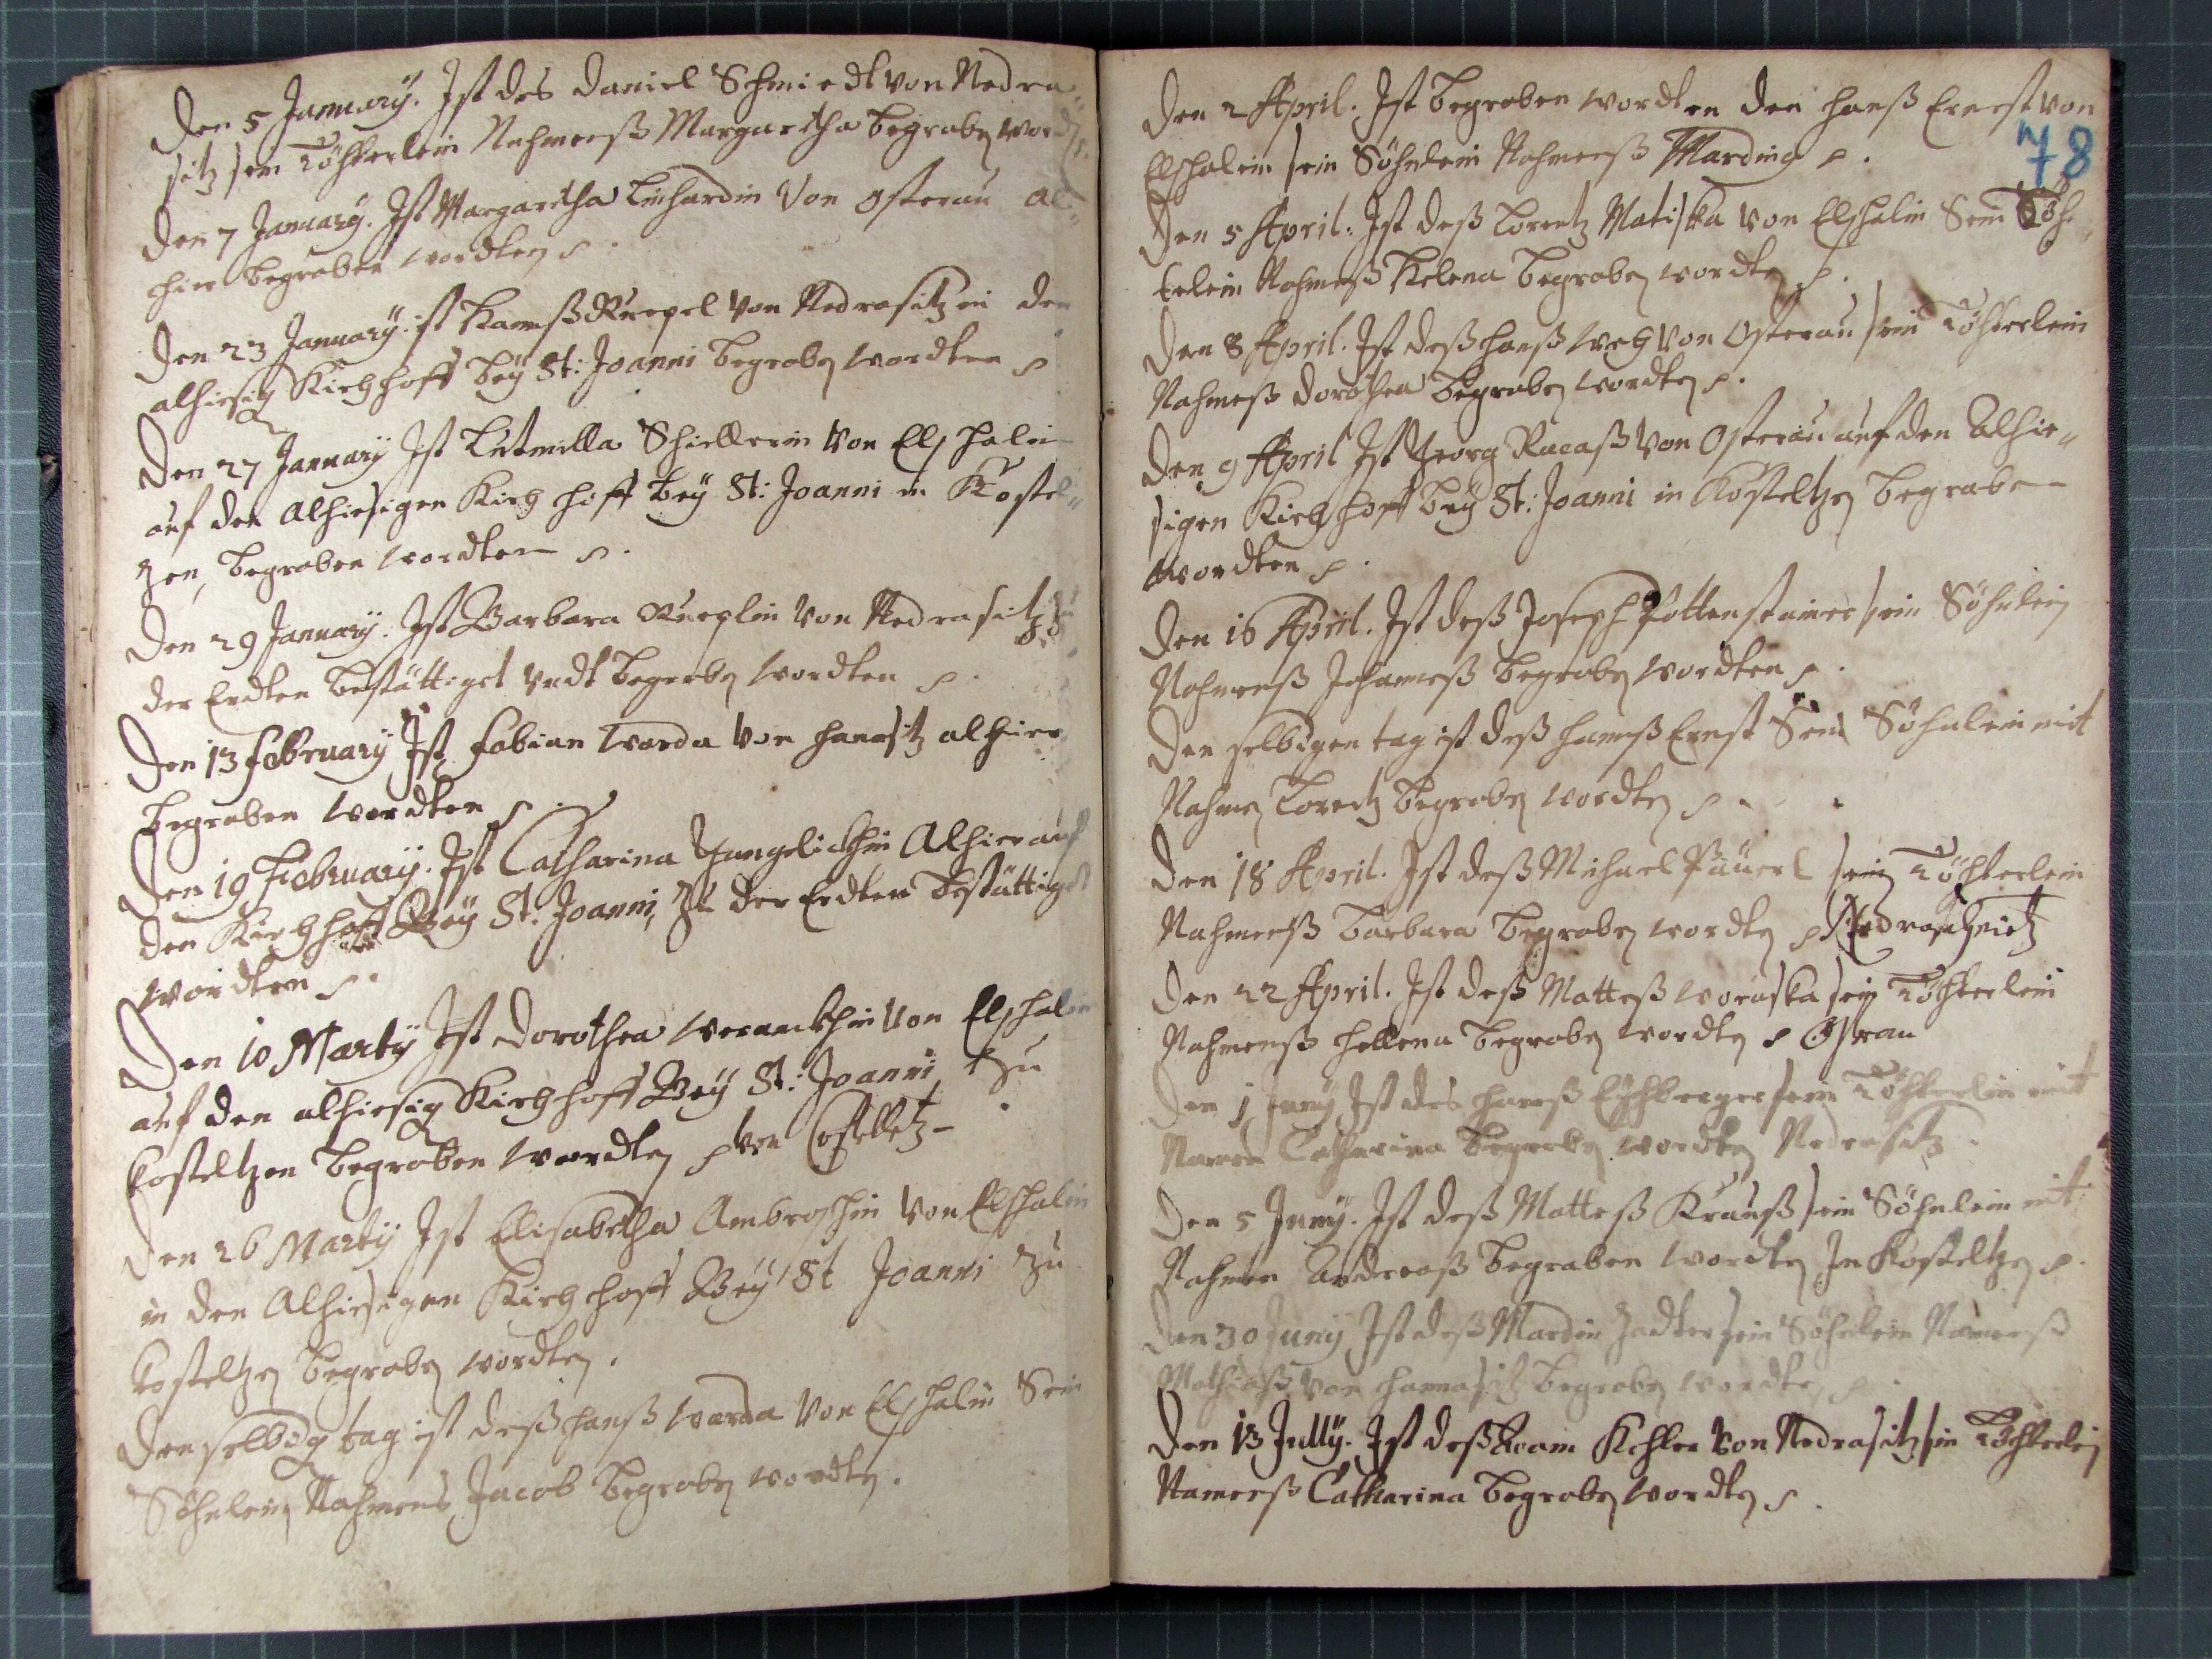 Den 5 January. Ist des Daniel Schmiedt von Nedra„
sitz sein Töchterlein Nahmenß Margaretha begraben word
Den 7 January. Ist Margaretha Linhardin Von Osterau al„
hier begraben wordten
Den 23 January. ist Hannß Ruepel Von Nedrasitz in den
alhiesigen Kirchhoff beÿ St: Joanni begraben wordten
Den 27 January Ist Lutmilla Schiellerin Von Elschalin
auf den Alhiesigen Kirchhoff beÿ St: Joanni in Kostel„
zen, begraben wordten
Den 29 January. Ist Barbara Rueplin Von Nedrasitz zu
der Erdten bestättiget Vndt begraben wordten
Den 13 February Ist Fabian Warda Von Hanasitz alhier
begraben wordten
Den 19 February. Ist Catharina Alhier auf
den Kirchhoff Beÿ St. Joanni, Zu der Erdten bestättiget
wordten
Den 10 Martÿ Ist Dorothea Von Elschalin
auf den alhiesigen Kirchhoff Beÿ St: Joanni Zu
Costeltzen begraben wordten von Costelletz
Den 26 Martÿ Ist Elisabetha Ambroschin Von Elschalin
in den Alhiesigen Kirchhoff Beÿ St Joanni Zu
Costeltzen begraben wordten.
Den selbigen tag ist deß Hanß Warda Von Elschalin Sein
Söhnlein Nahmens Jacob begraben wordten.
78
Den 2 April. Ist begraben wordten den Hanß Ernest von
Elschalin sein Söhnlein Nahmenß Marding
Den 5 April. Ist deß Lorentz Matiska Von Elschalin Sein Töch„
terlein Nahmenß Helena begraben wordten
Den 8 April. Ist deß Hanß Von Osterau sein Töchterlein
Nahmenß Dorothea begraben wordten
Den 9 April Ist Georg Racaß Von Osterau auf den Alhie„
sigen Kirchhoff beÿ St: Joanni in Kosteltzen begraben
wordten
Den 16 April. Ist deß Joseph Pottenstainer sein Söhnlein
Nahmenß Johanneß begraben wordten
Den selbigen tag ist deß Hannß Ernst Sein Söhnlein mit
Nahmen Lorentz begraben wordten
Den 18 April. Ist deß Michael Päuerl sein Töchterlein
Nahmenß Barbara begraben wordten Nedraschnitz
Den 22 April. Ist deß Matteß Woraska sein Töchterlein
Nahmenß Hellena begraben wordten Ostrau
Den 1 Junÿ Ist des Hannß Eÿchberger sein Töchterlein mit
Namen Catharina begraben wordten Nedrasitz
Den 5 Junÿ. Ist deß Matteß Krauß sein Söhnlein mit
Nahmen Andreaß begraben wordten In Kosteltzen
Den 30 Junÿ Ist deß Mardin Zadter sein Söhnlein Namenß
Mathiaß Von Hannasitz begraben wordten
Den 13 Jullÿ. Ist deß Adam Kohler Von Nedrasitz sein Töchterlein
Namenß Catharina begraben wordten